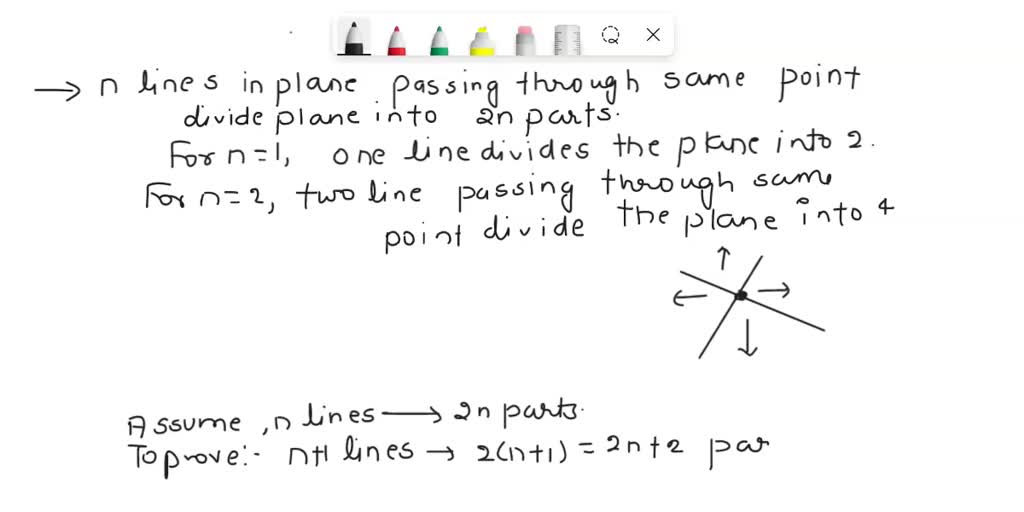 → n lines in plane passing through same point
divide plane into 2n parts.
For n=1, one line divides the plane into 2.
For n=2, two line passing through same
point divide the plane into 4
Assume, n lines → 2n parts.
To prove:- n+1 lines → 2(n+1) = 2n+2 par